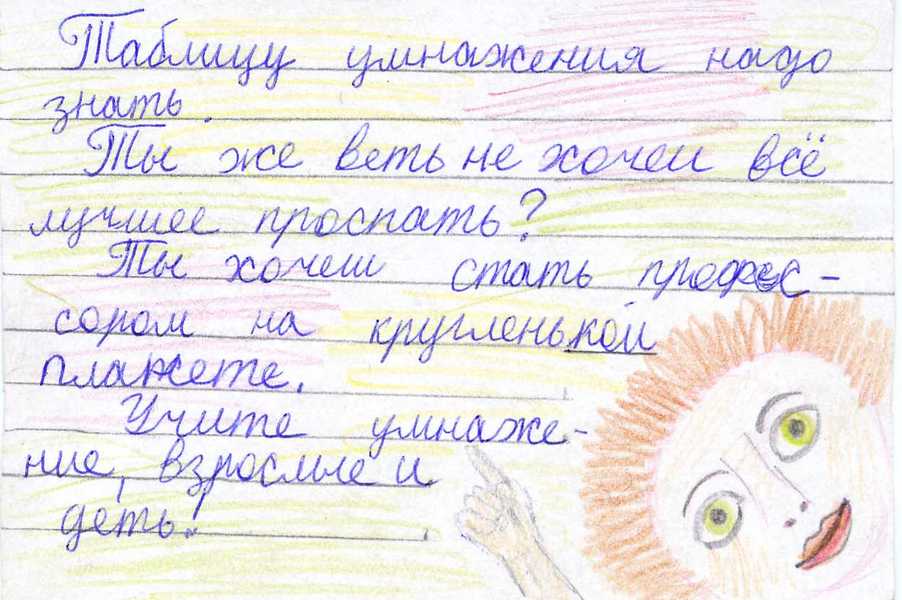 Таблицу умнажения надо
знать.
Ты же веть не хочеш всё
лучшее проспать?
Ты хочеш стать профес-
сором на кругленькой
планете.
Учите умнаже-
ние, взрослые и
деть!